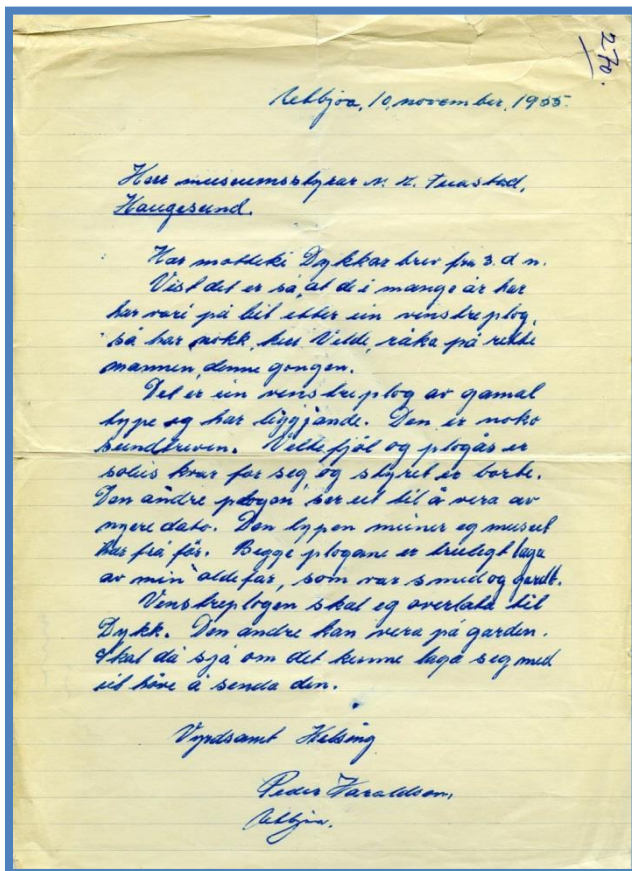 270.
Utbjoa, 10, november, 1955.
Herr museumsstyrar N. H. Tuastad,
Haugesund.
Har motteki Dykkar brev frå 3. d. n.
Vist det er så, at de i mange år har
har vori på leit etter ein vinstreplog,
så har nokk, hies Velde, råka på rette
mannen, denne gongen.
Det er ein venstreplog av gamal
type eg har liggjande. Den er noko
sundreven. Veltefjøl og plogås er
soleis kvar for seg og styret er borte.
Den andre plogen ser ut til å vera av
nyere dato. Den typen meiner eg museet
har frå før. Begge plogane er truleg laga
av min oldefar, som var smed og gardb.
Venstreplogen skal eg overlata til
Dykk. Den andre kan vera på garden.
Skal då sjå om det kunne laga seg med
eit høve å senda den.
Vyrdsamt Helsing
Peder Haraldson,
Utbjoa.